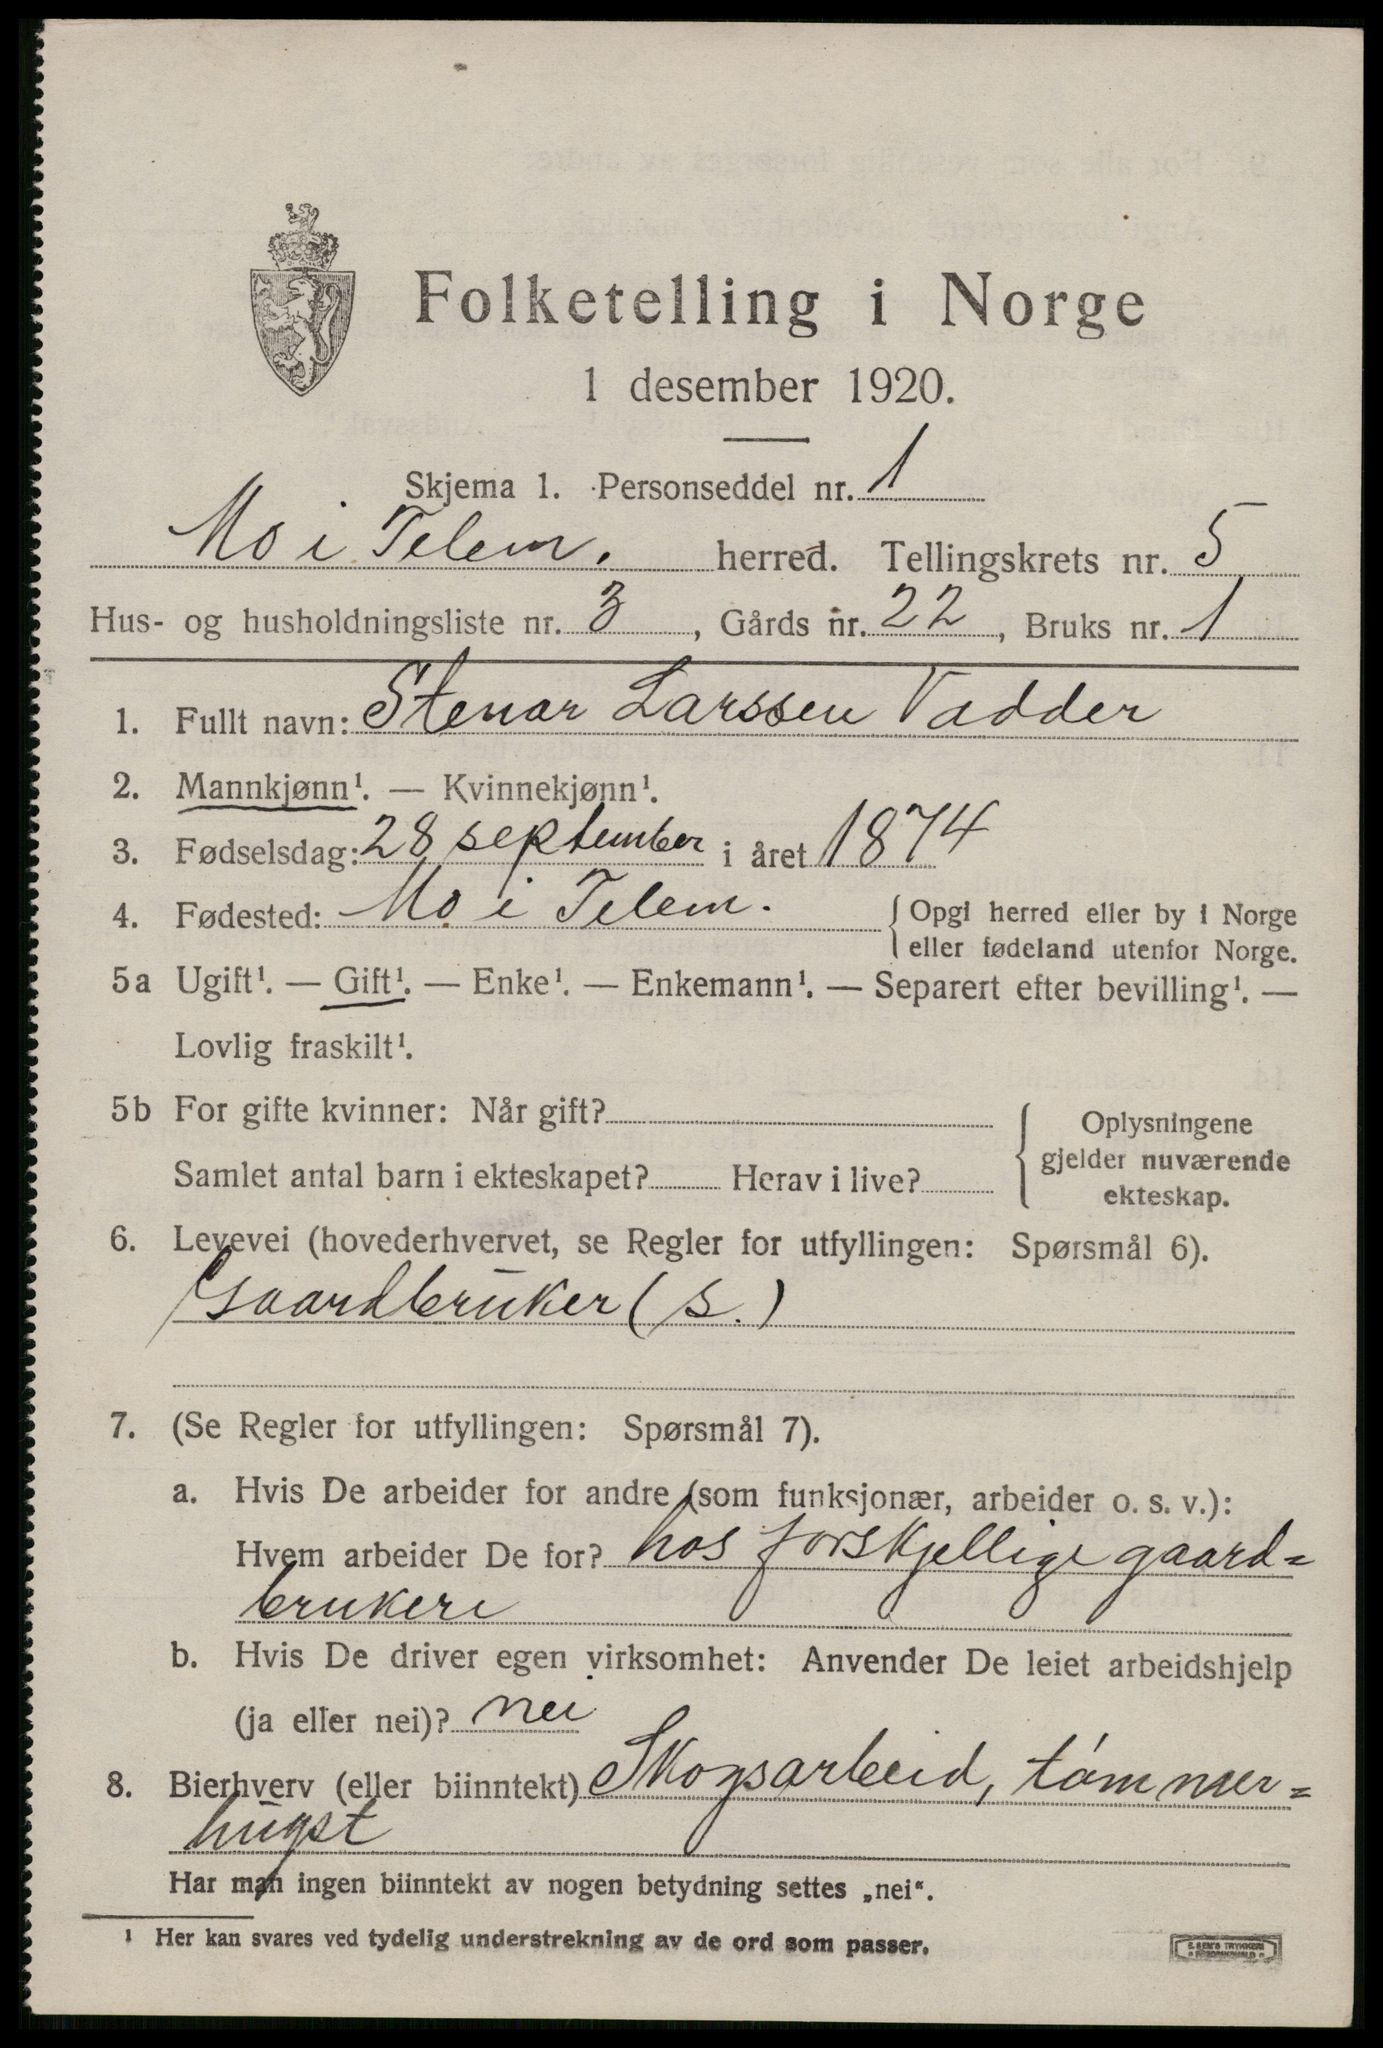 Folketelling i Norge
1 desember 1920.
Skjema 1. Personseddel nr. 1
Mo i Telem. herred. Tellingskrets nr. 5
Hus- og husholdningsliste nr. 3, Gårds nr. 22, Bruks nr. 1
1. Fullt navn: Stenar Larssen Vadder
2. Mannkjønn¹. — Kvinnekjønn¹.
3. Fødselsdag: 28 september i året 1874
4. Fødested: Mo i Telem. { Opgi herred eller by i Norge
eller fødeland utenfor Norge.
5a Ugift¹. — Gift¹. — Enke¹. — Enkemann¹. — Separert efter bevilling¹. —
Lovlig fraskilt¹.
5b For gifte kvinner: Når gift?
Samlet antal barn i ekteskapet? Herav i live?
{ Oplysningene
gjelder nuværende
ekteskap.
6. Levevei (hovederhvervet, se Regler for utfyllingen: Spørsmål 6).
Gaardbruker (s.)
7. (Se Regler for utfyllingen: Spørsmål 7).
a. Hvis De arbeider for andre (som funksjonær, arbeider o. s. v.):
Hvem arbeider De for? hos forskjellige gaard=
brukere
b. Hvis De driver egen virksomhet: Anvender De leiet arbeidshjelp
(ja eller nei)? nei
8. Bierhverv (eller biinntekt) Skogsarbeid, tømmer=
hugst
Har man ingen biinntekt av nogen betydning settes „nei“.
¹ Her kan svares ved tydelig understrekning av de ord som passer.